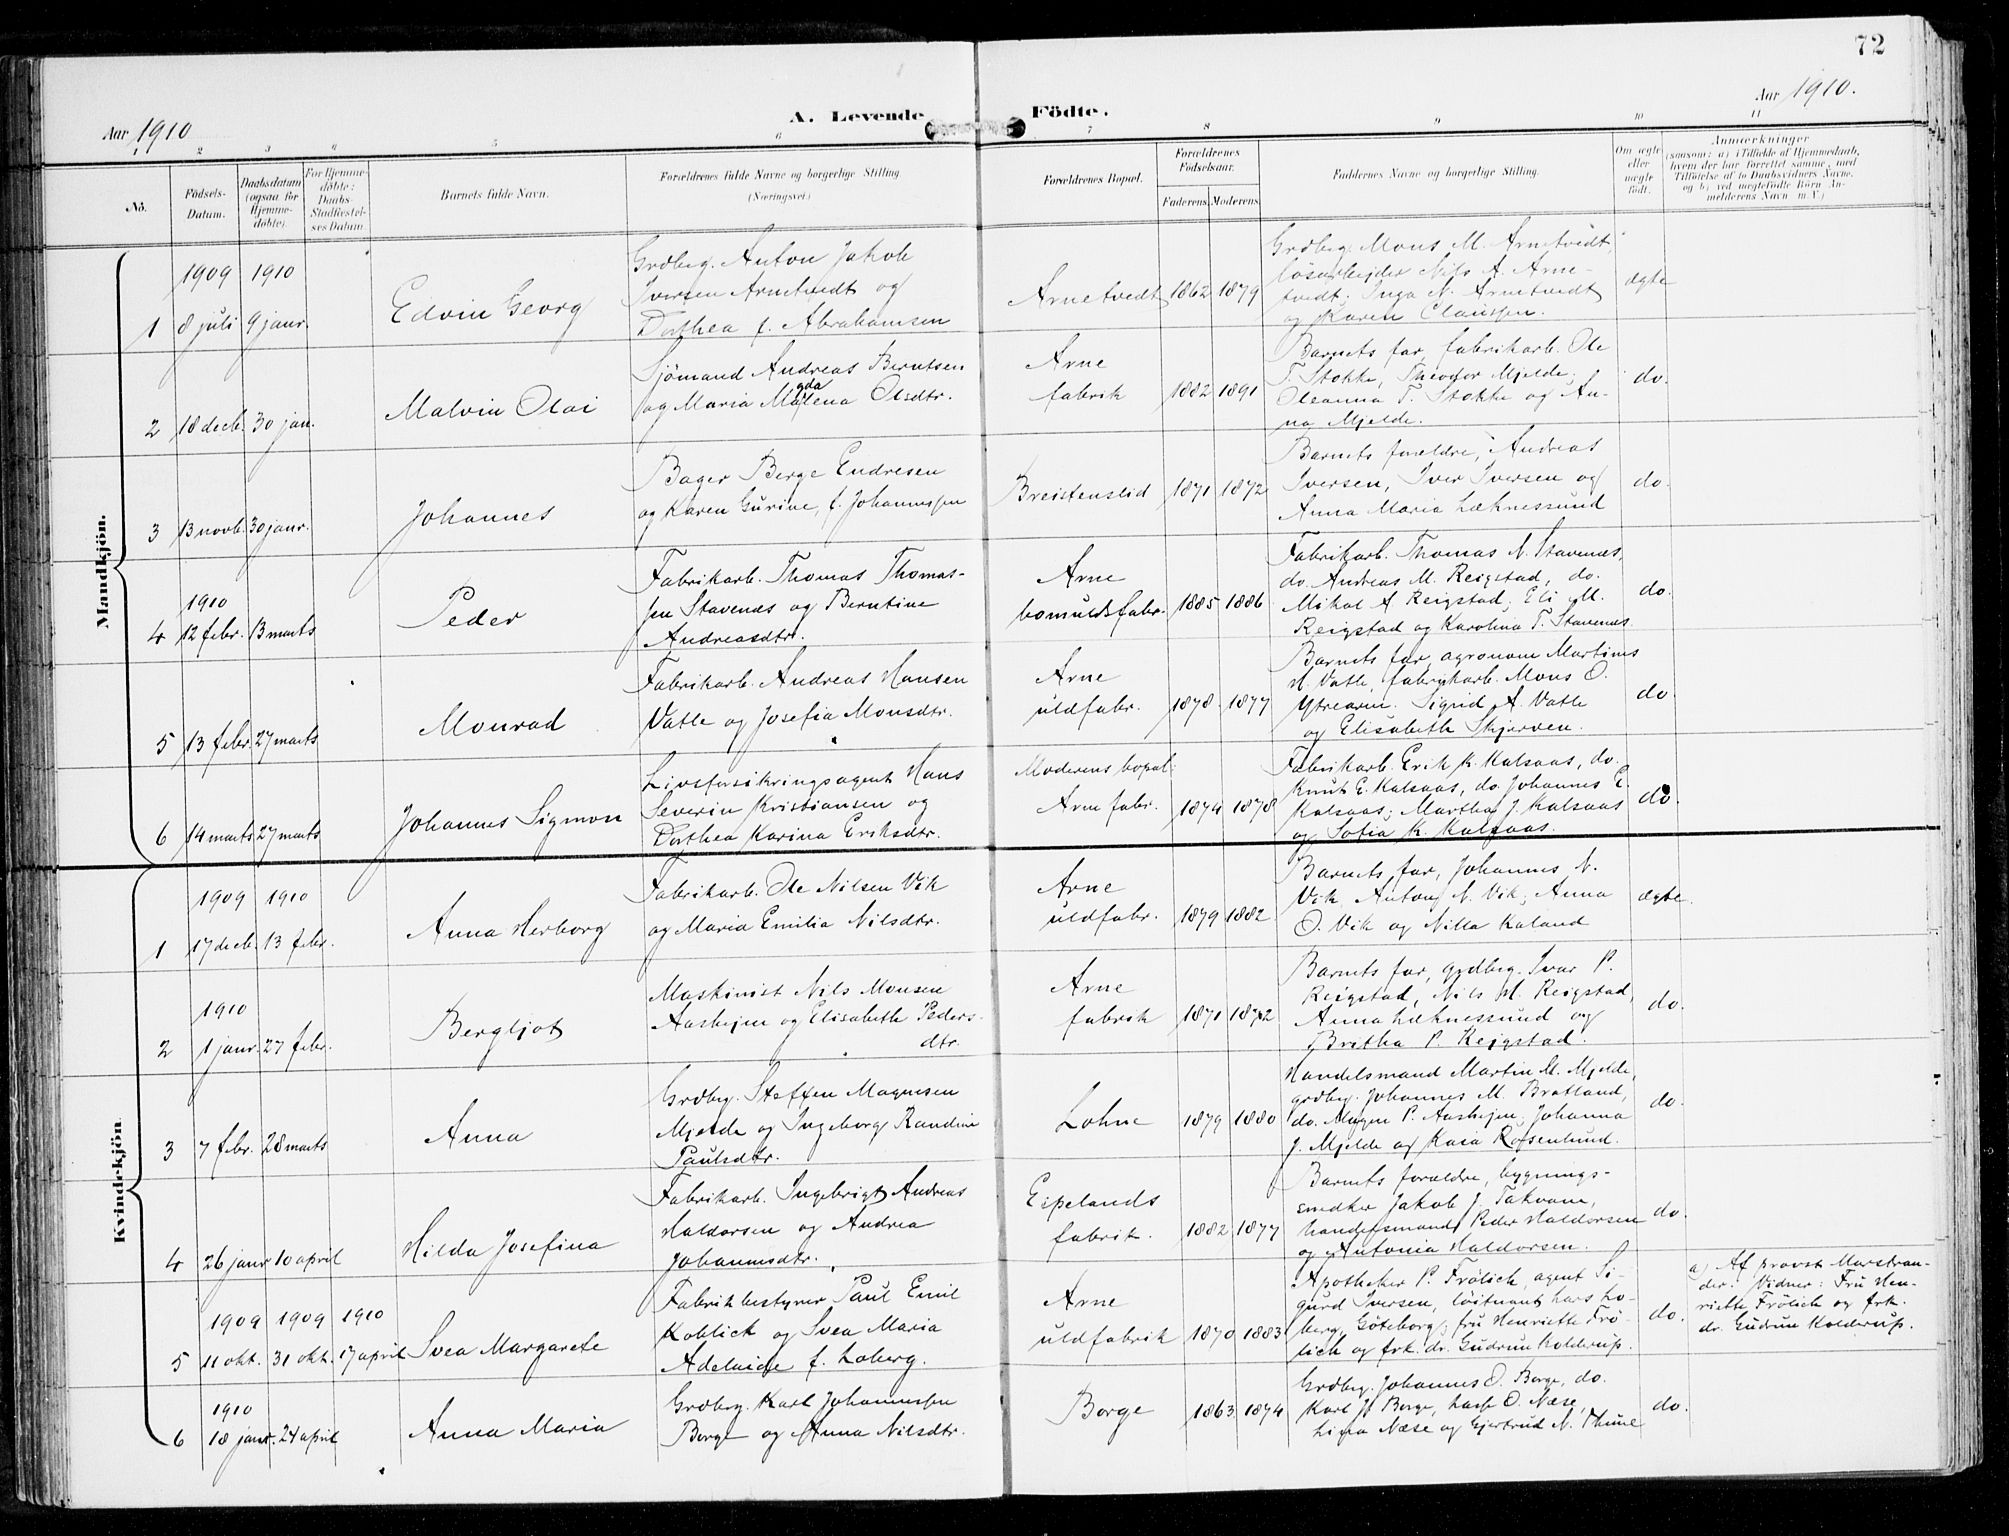 72
Aar 1910
A. Levende Födte.
Aar 1910.
2 3 4 5 6 7 8 9 10 11
No.
Födsels-
Datum.
Daabsdatum
(ogsaa for
Hjemme-
döbte).
For Hjemme-
döbte:
Daabs-
Stadfæstel-
ses Datum.
Barnets fulde Navn.
Forældrenes fulde Navne og borgerlige Stilling.
(Næringsvei)
Forældrenes Bopæl.
Forældrenes
Födselsaar.
Faderens. Moderens.
Faddernes Navne og borgerlige Stilling.
Om ægte
eller
uægte
födt.
Anmærkninger
(saasom: a) i Tilfælde af Hjemmedaab,
hvem der har forrettet samme, med
Tilföielse af to Daabsvidners Navne,
og b) ved uægtefödte Börn An-
melderens Navn m. V.)
Mandkjön.
1
1909
8 juli
1910
9 janr.
Edvin Georg
Grdbrg. Anton Jakob
Iversen Arnetvedt og
Dorthea f. Abrahamsen
Arnetvedt
1862 1879
Grdbrg. Mons M. Arnetvedt,
lösarbejder Nils A. Arne-
tvedt; Inga N. Arnetvedt
og Karen Claussen.
ægte
2
18 decb. 30 jan.
Malvin Olai
Sjömand Andreas Berntsen
og Maria Magdalena Olsdtr.
Arne
fabrik
1882 1891
Barnets far, fabrikarb. Ole
T. Stokke, Theodor Mjelde;
Oleanna T. Stokke og An-
na Mjelde.
do.
3
13 novb. 30 janr.
Johannes
Bager Berge Endresen
og Karen Gurine, f. Johannessen
Breistenslid
1871 1872
Barnets forældre, Andreas
Iversen, Iver Iversen og
Anna Maria Læknessund
do.
4
1910
12 febr. 13 marts
Peder
Fabrikarb. Thomas Thomas-
sen Stavenæs og Berntine
Andreasdtr.
Arne
bomuldsfabr.
1885 1886
Fabrikarb. Thomas N. Stavenæs,
do. Andreas M. Reigstad, do.
Mikal A Reigstad; Eli M.
Reigstad og Karolina T. Stavenæs
do.
5
13 febr. 27 marts
Monrad
Fabrikarb. Andreas Hansen
Vatle og Josefia Monsdtr.
Arne
uldfabr.
1878 1877
Barnets far, agronom Martinus
H. Vatle, fabrikarb. Mons O.
Ytrearne. Sigrid A. Vatle
og Elisabeth Skjerven.
do.
6
14 marts 27 marts
Johannes Sigmon
Livsforsikringsagent Hans
Severin Kristiansen og
Dorthea Karina Eriksdtr.
Moderens bopæl:
Arne fabr.
1874 1878
Fabrikarb. Erik K. Kalsaas, do.
Knut E. Kalsaas, do. Johannes E.
Kalsaas; Martha J. Kalsaas
og Sofia K. Kalsaas.
do.
Kvindekjön.
1
1909
17 decb.
1910
13 febr.
Anna Herborg
Fabrikarb. Ole Nilsen Vik
og Maria Emilia Nilsdtr.
Arne
uldfabr.
1879 1882
Barnets far, Johannes N.
Vik, Anton N. Vik; Anna
O. Vik og Nilla Kaland
ægte
2
1910
1 janr. 27 febr.
Bergljot
Maskinist Nils Monsen
Aashejm og Elisabeth Peders-
dtr.
Arne
fabrik
1871 1872
Barnets far, grdbrg. Ivar P.
Reigstad, Nils M. Reigstad,
Anna Læknessund og
Britha P. Reigstad.
do.
3
7 febr. 28 marts
Anna
Grdbrg. Steffen Magnesen
Mjelde og Ingeborg Randine
Paulsdtr.
Lohne
1879 1880
Handelsmand Martin M. Mjelde,
grdbrg. Johannes M. Bratland,
do. Mogen P. Aashejm; Johanna
J. Mjelde og Kaia Rosenlund.
do.
4
26 janr. 10 april
Hilda Josefina
Fabrikarb. Ingebrigt Andreas
Haldorsen og Andrea
Johannesdtr.
Espelands
fabrik.
1882 1877
Barnets forældre, bygnings-
snedker Jakob J. Takvam,
handelsmand Peder Haldorsen
og Antonia Haldorsen.
do.
5
1909
11 okt.
1909
31 okt.
1910
17 april
Svea Margarete
Fabrikbestyrer Paul Emil
Koblick og Svea Maria
Adelaide f. Loberg.
Arne
uldfabrik
1870 1883
Apotheker P. Frölich, agent Si-
gurd Iversen, löitnant Lars Lo-
berg, Göteborg; fru Henriette Frö-
lich og frk. dr. Gudrun Kolderup.
do.
a) Af provst Marstran-
der. Vidner: Fru Hen-
riette Frölich og frk.
dr. Gudrun Kolderup.
6
1910
18 janr. 24 april
Anna Maria
Grdbrg. Karl Johannessen
Borge og Anna Nilsdtr.
Borge
1863 1874
Grdbrg. Johannes O. Borge, do.
Karl J. Borge, Lasse O. Næse,
Lina Næse og Gjertrud N. Thune
do.